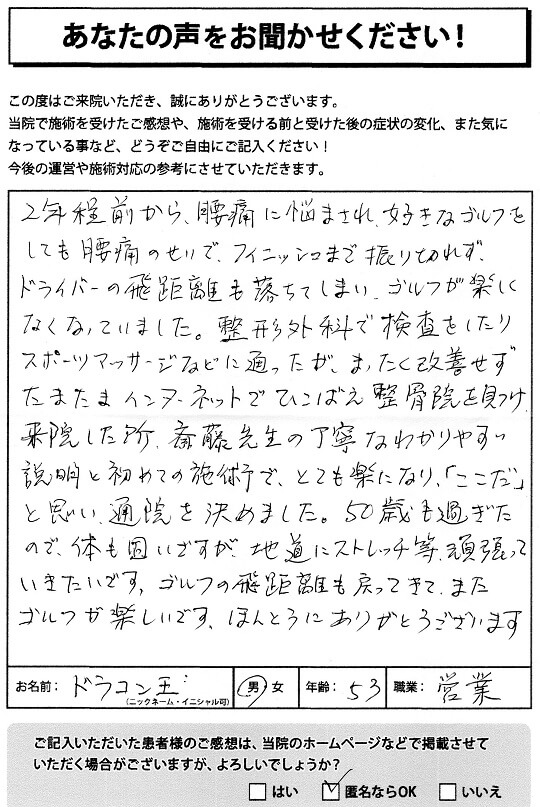 あなたの声をお聞かせください！
この度はご来院いただき、誠にありがとうございます。
当院で施術を受けたご感想や、施術を受ける前と受けた後の症状の変化、また気に
なっている事など、どうぞご自由にご記入ください！
今後の運営や施術対応の参考にさせていただきます。
2年程前から、腰痛に悩まされ、好きなゴルフを
しても腰痛のせいで、フィニッシュまで振り切れず、
ドライバーの飛距離も落ちてしまい、ゴルフが楽しく
なくなっていました。整形外科で検査をしたり
スポーツマッサージなどに通ったが、まったく改善せず
たまたまインターネットでひこばえ整骨院を見つけ
来院した所、斎藤先生の丁寧なわかりやすい
説明と初めての施術で、とても楽になり、「ここだ」
と思い、通院を決めました。50歳も過ぎた
ので、体も固いですが、地道にストレッチ等、頑張って
いきたいです。ゴルフの飛距離も戻ってきて、また
ゴルフが楽しいです。ほんとうにありがとうございます
お名前： ドラコン王 (ニックネーム・イニシャル可) 男 女 年齢： 53 職業： 営業
ご記入いただいた患者様のご感想は、当院のホームページなどで掲載させて
いただく場合がございますが、よろしいでしょうか？
はい 匿名ならOK いいえ